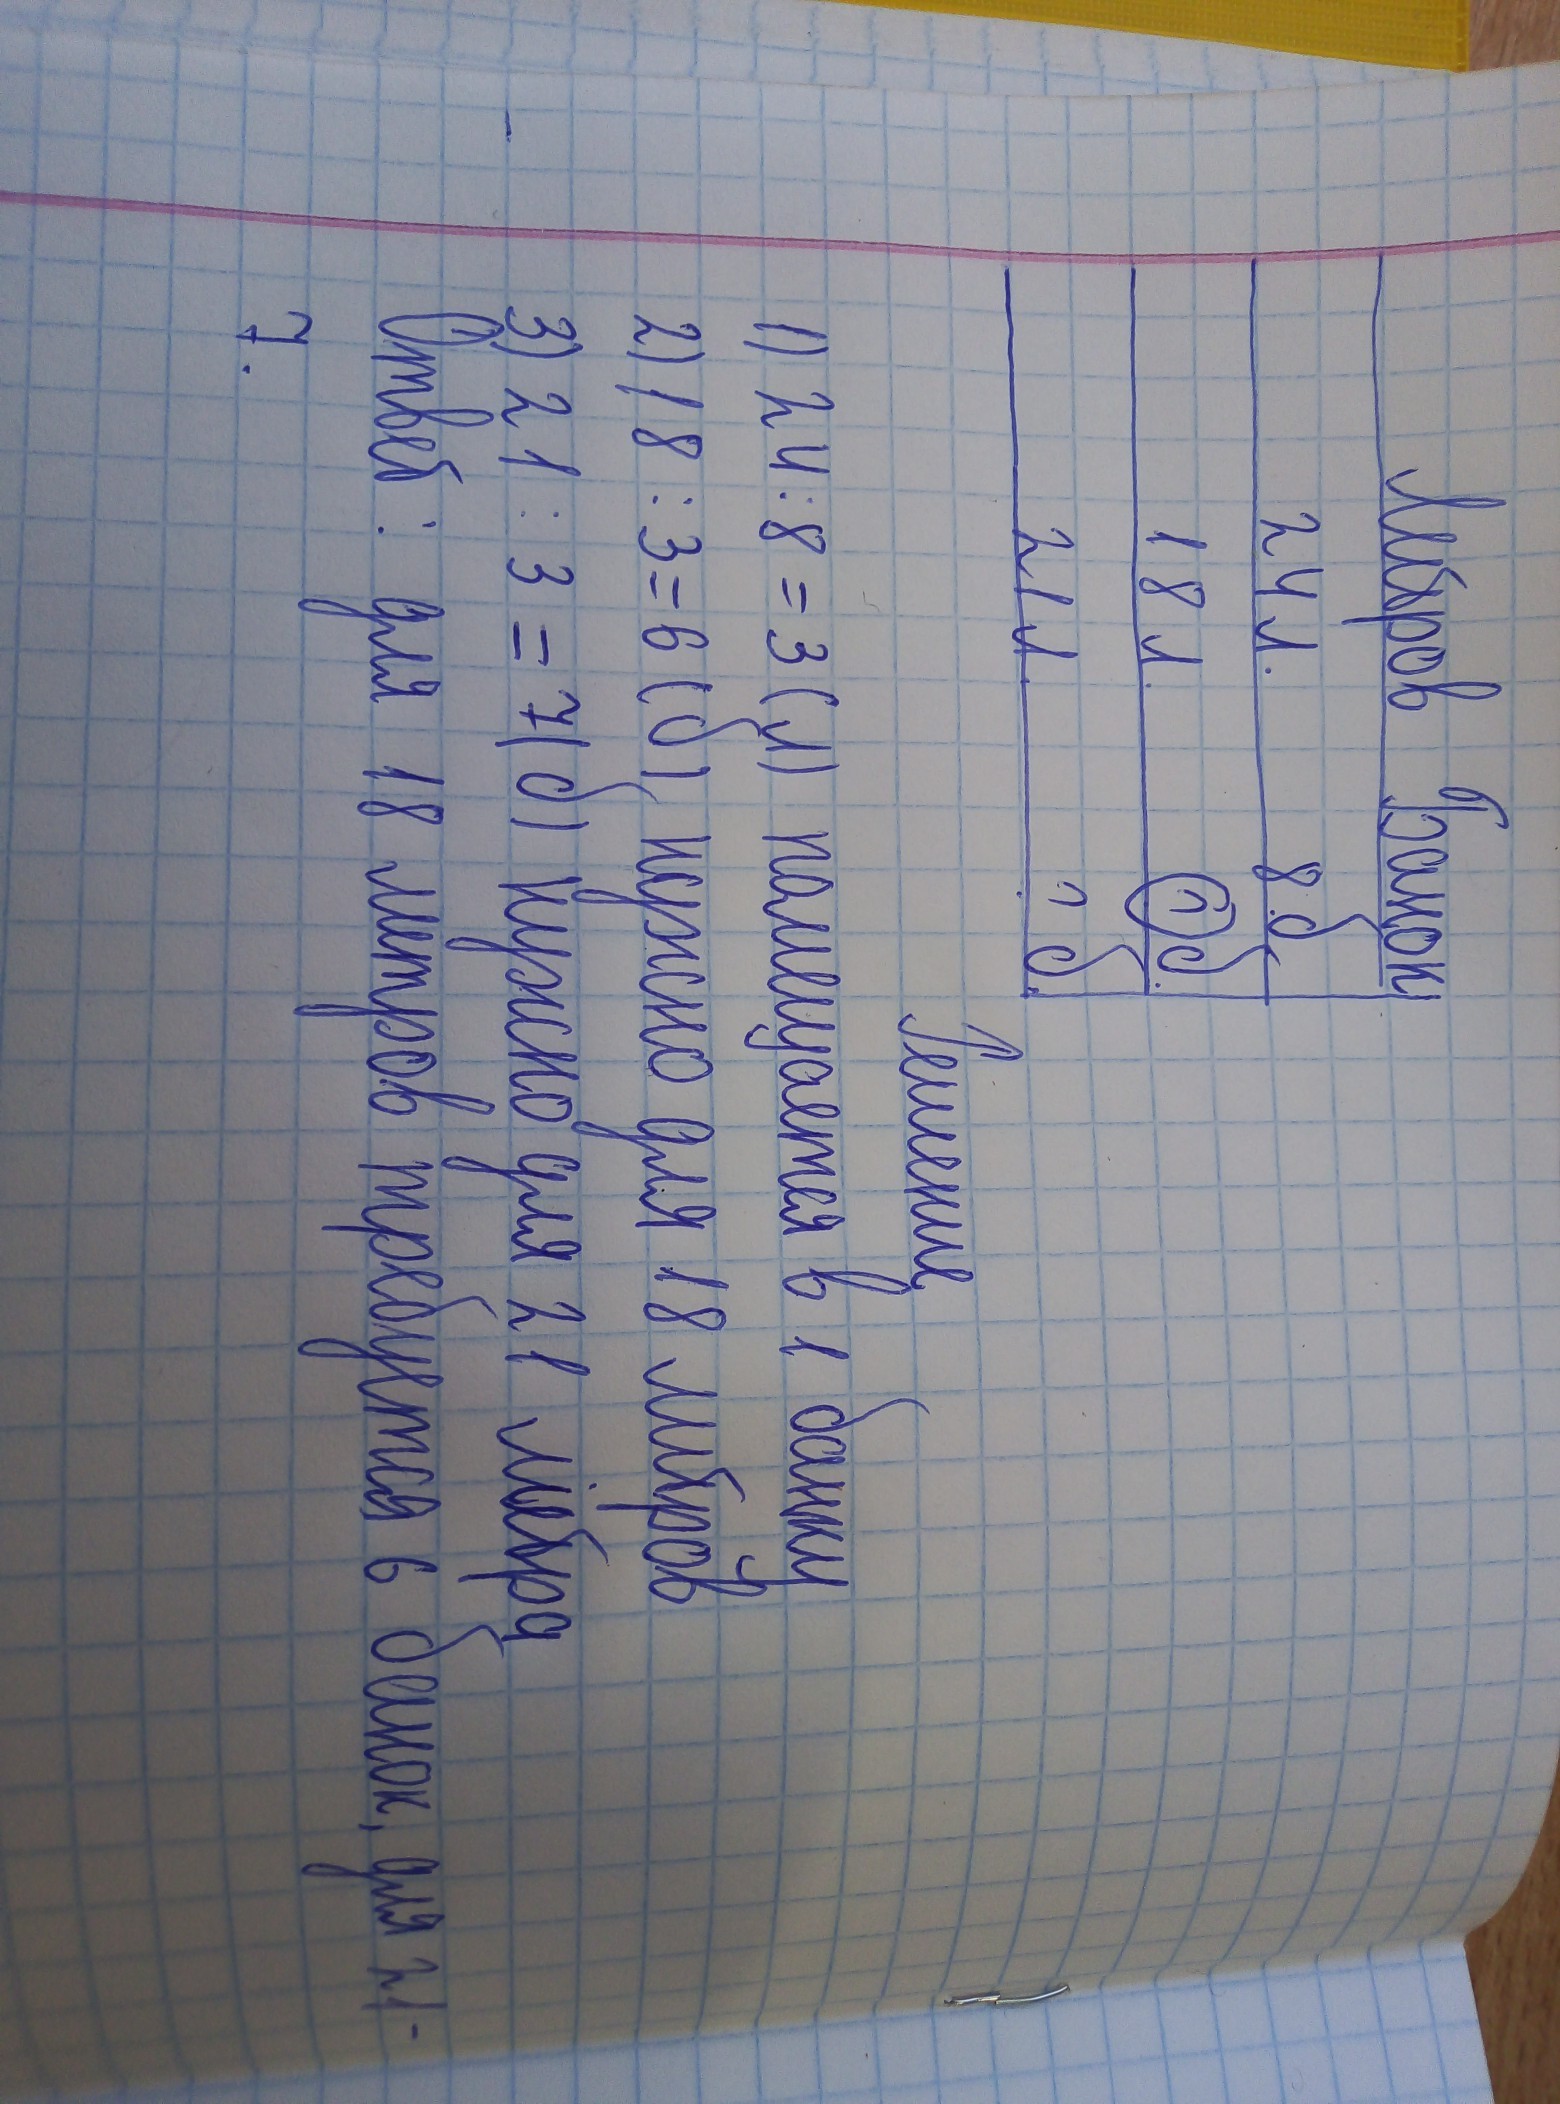 Либров Банок
24 л. 8 б
18 л. ? б.
21 л. ? б.
Решение
1) 24:8=3(л) помещается в 1 банку
2) 18:3=6(б) нужно для 18 либров
3) 21:3=7(б) нужно для 21 либра
Ответ: для 18 метров требуется 6 банок, для 21-
7.